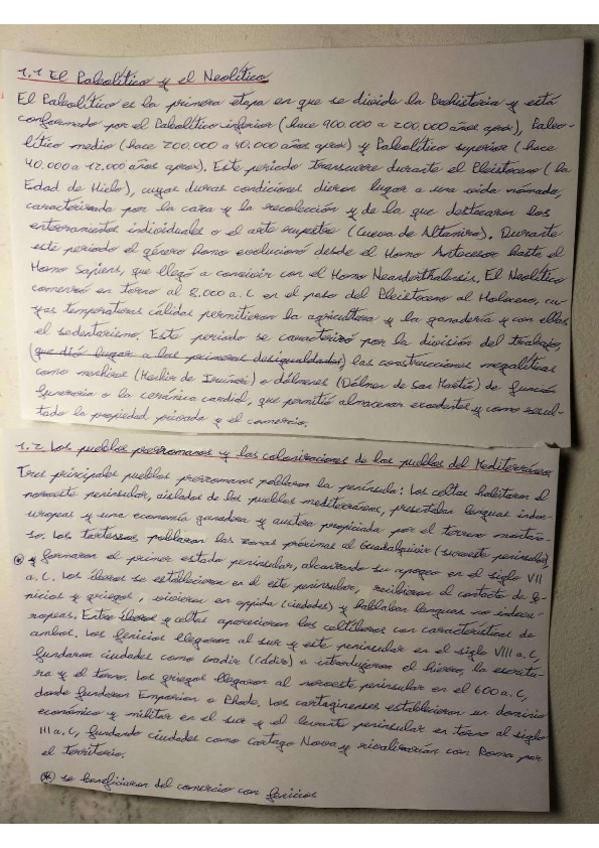 1.1 El Paleolítico y el Neolítico
El Paleolítico es la primera etapa en que se divide la Prehistoria y está
conformado por el Paleolítico inferior (hace 900.000 a 200.000 años aprox), Paleo-
lítico medio (hace 200.000 a 40.000 años aprox) y Paleolítico superior (hace
40.000 a 12.000 años aprox). Este periodo transcurre durante el Pleistoceno (la
Edad de Hielo), cuyas duras condiciones dieron lugar a una vida nómada,
caracterizada por la caza y la recolección y de la que destacaron los
enterramientos individuales o el arte rupestre (Cueva de Altamira). Durante
este periodo el género homo evolucionó desde el Homo Antecesor hasta el
Homo Sapiens, que llegó a convivir con el Homo Neanderthalensis. El Neolítico
comenzó en torno al 8.000 a. C en el paso del Pleistoceno al Holoceno, cu-
yas temperaturas cálidas permitieron la agricultura y la ganadería y con ellas
el sedentarismo. Este periodo se caracterizó por la división del trabajo,
(que dió lugar a las primeras desigualdades) las construcciones megalíticas
como menhires (Menhir de ) o dólmenes (Dólmen de San Martín) de función
funeraria o la cerámica cardial, que permitió almacenar excedentes y como resul-
tado la propiedad privada y el comercio.
1.2 Los pueblos prerromanos y las colonizaciones de los pueblos del Mediterráneo
Tres principales pueblos prerromanos poblaron la península: Los celtas habitaron el
noroeste peninsular, aislados de los pueblos mediterráneos, presentaban lenguas indoe-
uropeas y una economía ganadera y austera propiciada por el terreno montaño-
so. Los tartessos poblaron las zonas próximas al Guadalquivir (suroeste peninsular)
* y formaron el primer estado peninsular, alcanzando su apogeo en el siglo VII
a. C. Los íberos se establecieron en el este peninsular, recibieron el contacto de fe-
nicios y griegos, vivieron en oppida (ciudades) y hablaban lenguas no indoeu-
ropeas. Entre íberos y celtas aparecieron los celtíberos con características de
ambos. Los fenicios llegaron al sur y este peninsular en el siglo VIII a. C,
fundaron ciudades como Gadir (Cádiz) e introdujeron el hierro, la escritu-
ra y el torno. Los griegos llegaron al noroeste peninsular en el 600 a. C,
donde fundaron Emporion o Rhode. Los cartaginenses establecieron un dominio
económico y militar en el sur y el levante peninsular en torno al siglo
III a. C, fundando ciudades como Cartago Nova y rivalizarían con Roma por
el territorio.
* se beneficiaron del comercio con fenicios